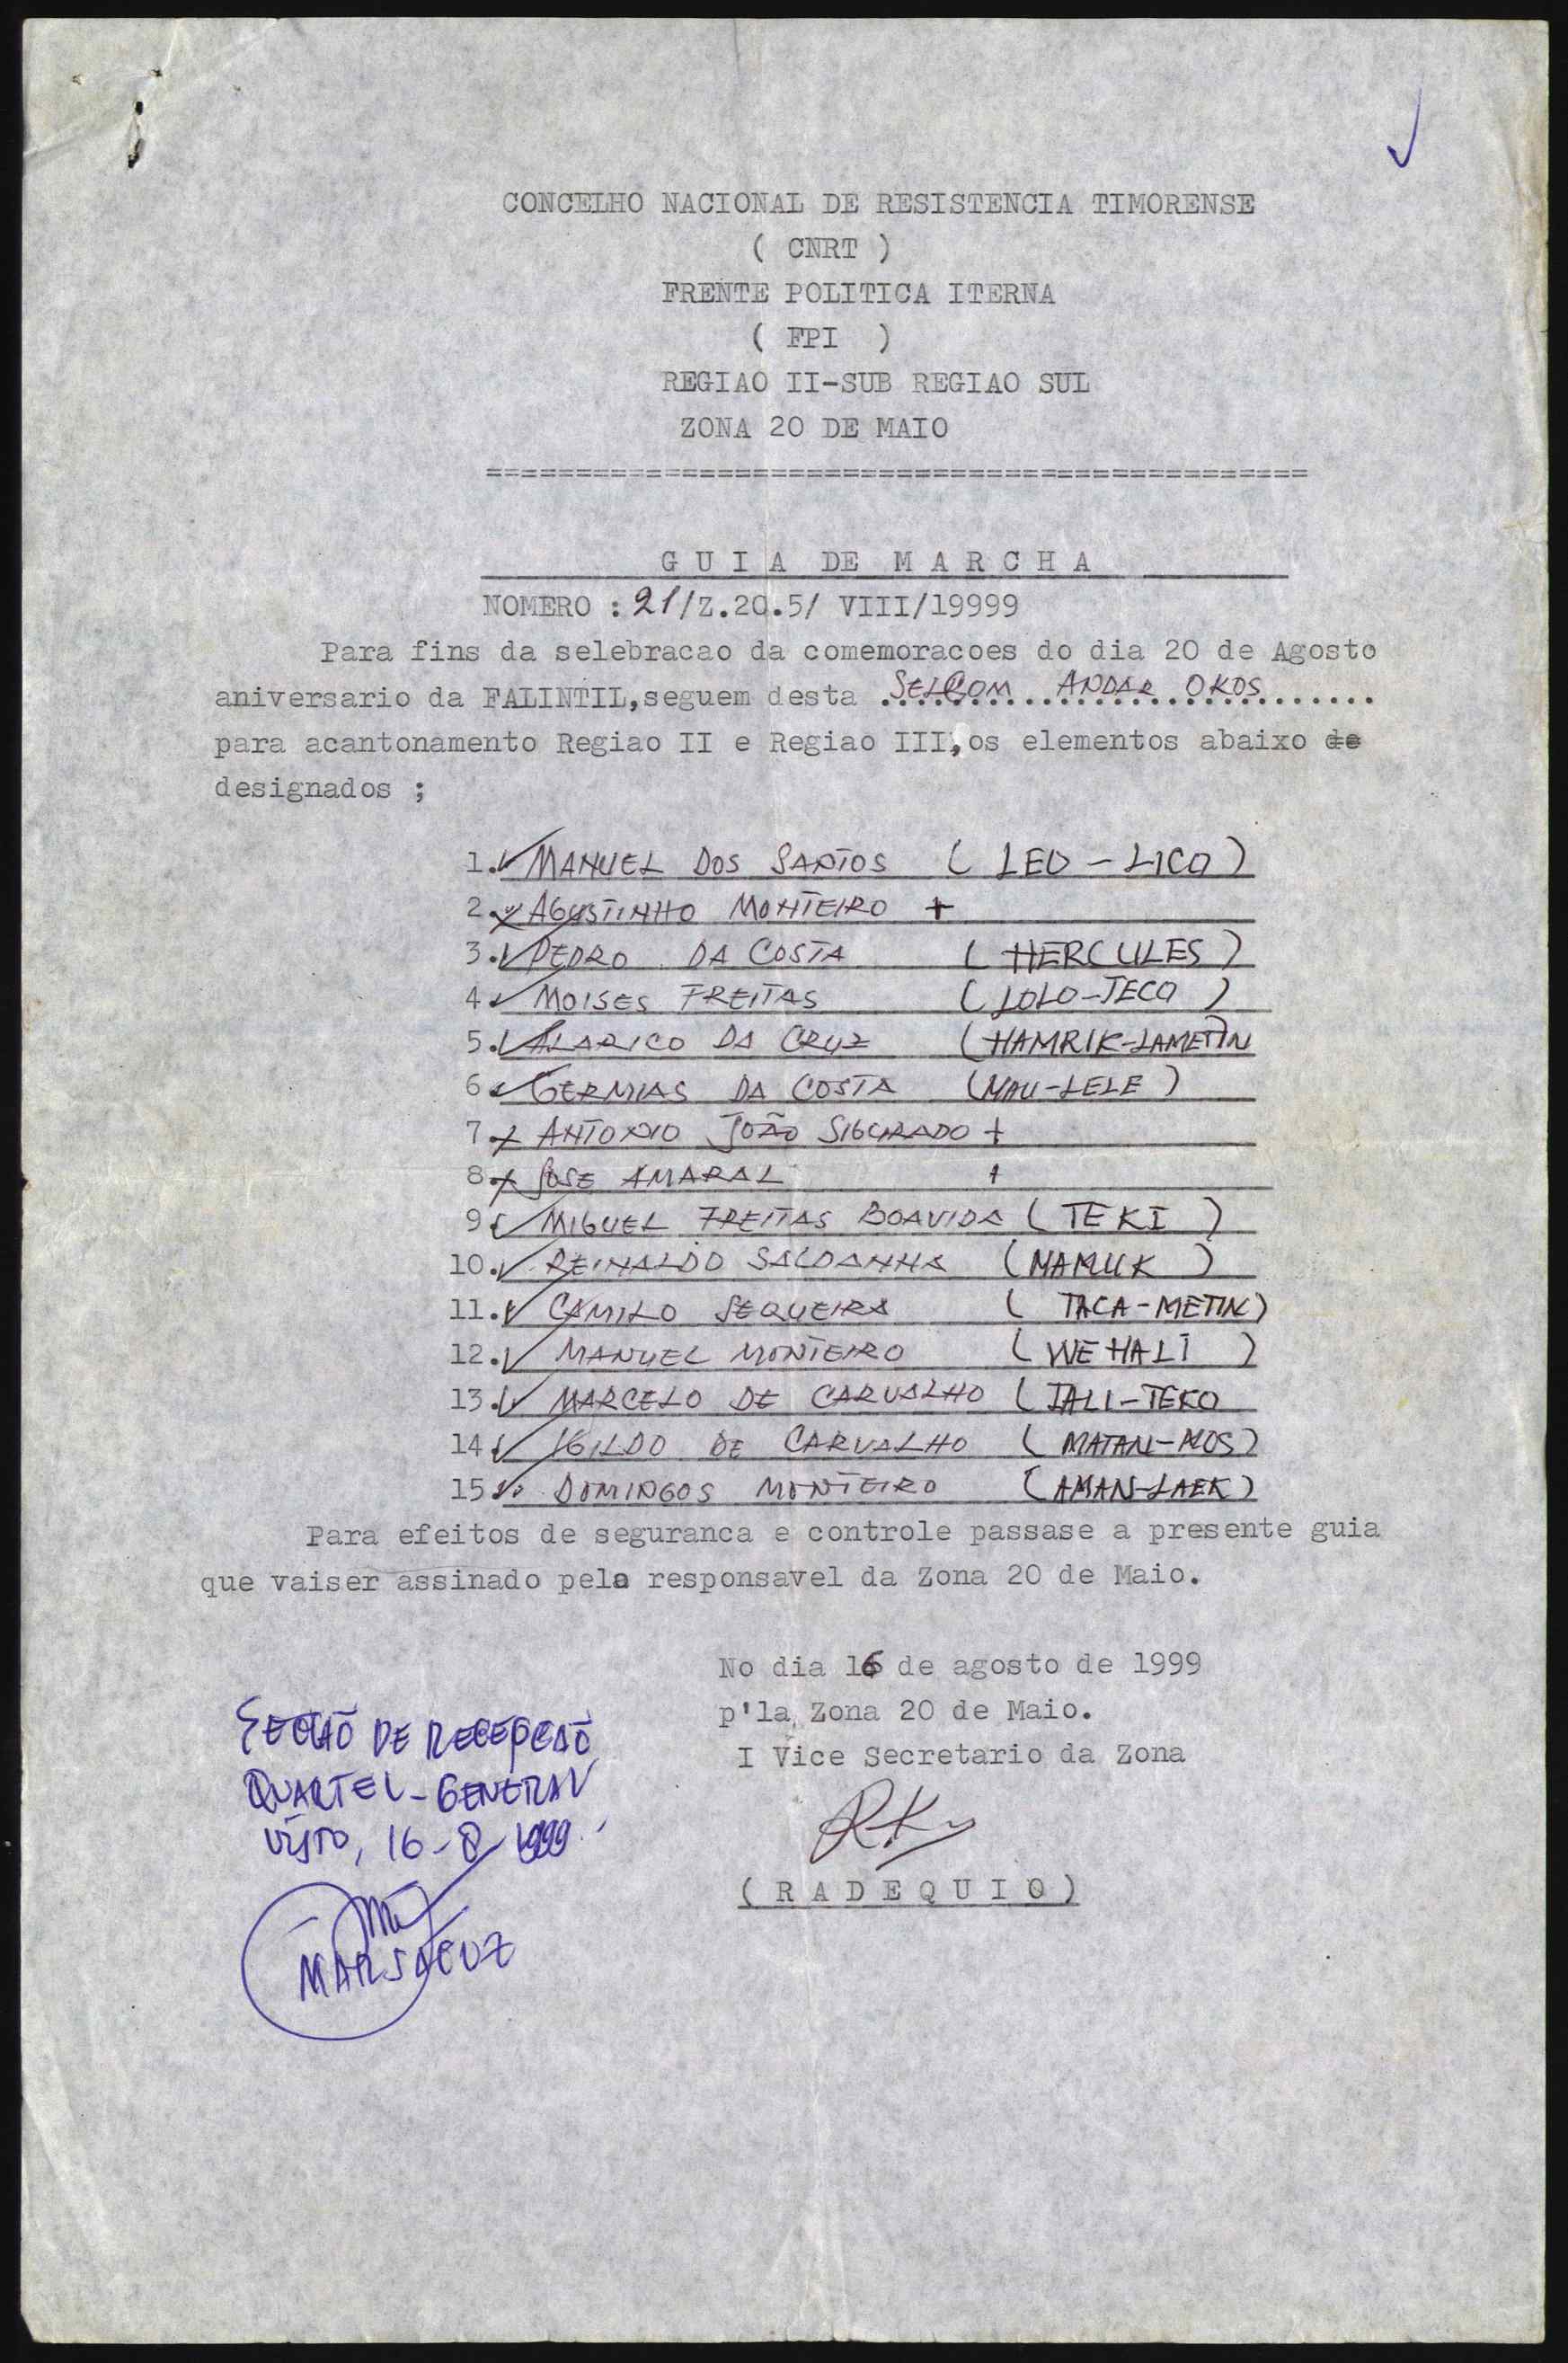 CONCELHO NACIONAL DE RESISTENCIA TIMORENSE
( CNRT )
FRENTE POLITICA ITERNA
( FPI )
REGIAO II-SUB REGIAO SUL
ZONA 20 DE MAIO
==============================================
G U I A DE M A R C H A
NOMERO : 21/Z.20.5/ VIII/19999
Para fins da selebracao da comemoracoes do dia 20 de Agosto
aniversario da FALINTIL,seguem desta SELCOM ANDAR OKOS
para acantonamento Regiao II e Regiao III,os elementos abaixo de
designados ;
1. MANUEL DOS SANTOS ( LEO - LICO )
2. AGUSTINHO MONTEIRO +
3. PEDRO DA COSTA ( HERCULES )
4 MOISES FREITAS ( LOLO-TECO )
5. ALARICO DA CRUZ ( HAMRIK-LAMETIN
6 GERMIAS DA COSTA (MAU-LELE )
7 ANTONIO JOÃO SIGURADO +
8 JOSE AMARAL +
9 MIGUEL FREITAS BOAVIDA ( TEKI )
10. REINALDO SALDANHA ( MAMUK )
11. CAMILO SEQUEIRA ( TACA-METIN )
12. MANUEL MONTEIRO ( WE HALI )
13. MARCELO DE CARVALHO ( TALI-TEKO
14 IGILDO DE CARVALHO ( MATAN-MOS )
15 DOMINGOS MONTEIRO ( AMAN-LAEK )
Para efeitos de seguranca e controle passase a presente guia
que vaiser assinado pelo responsavel da Zona 20 de Maio.
No dia 16 de agosto de 1999
p'la Zona 20 de Maio.
I Vice Secretario da Zona
( R A D E Q U I O )
SECÇÃO DE RECEPÇÃO
QUARTEL-GENERAL
VISTO, 16-8-1999.